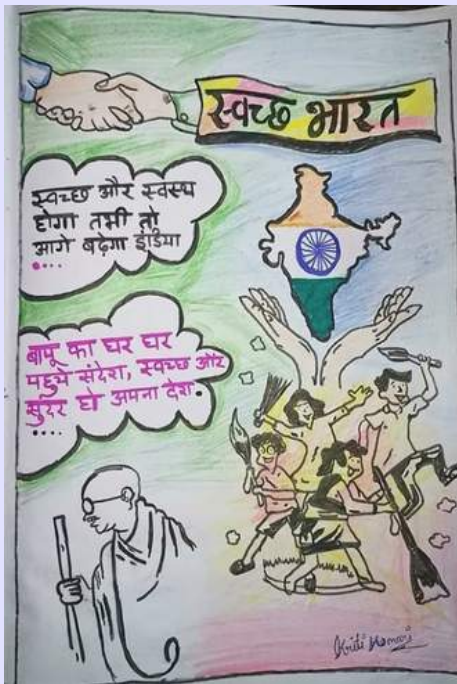 स्वच्छ भारत
स्वच्छ और स्वस्थ
होगा तभी तो
आगे बढ़ेगा इंडिया
....
बापू का घर घर
पहुचे संदेश, स्वच्छ और
सुंदर हो अपना देश.
....
Kriti Kumari